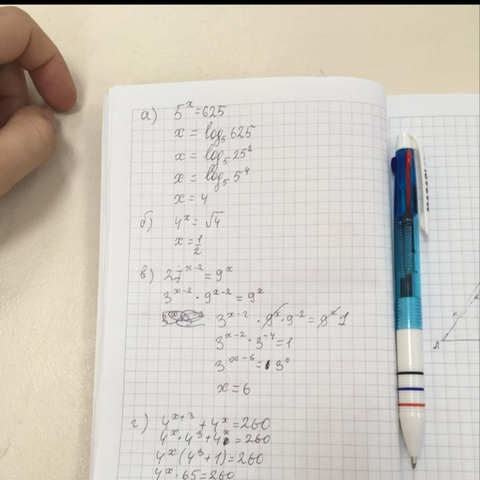 а) 5^x = 625
x = log_5 625
x = log_5 25^2
x = log_5 5^4
x = 4
б) 4^x = √4
x = 1/2
в) 27^{x-2} = 9^x
3^{x-2} · 9^{x-2} = 9^x
3^{x-2} · 9^x · 9^{-2} = 9^x 1
3^{x-2} · 3^{-4} = 1
3^{x-6} = 3^0
x = 6
г) 4^{x+3} + 4^x = 260
4^x · 4^3 + 4^x = 260
4^x (4^3 + 1) = 260
4^x · 65 = 260